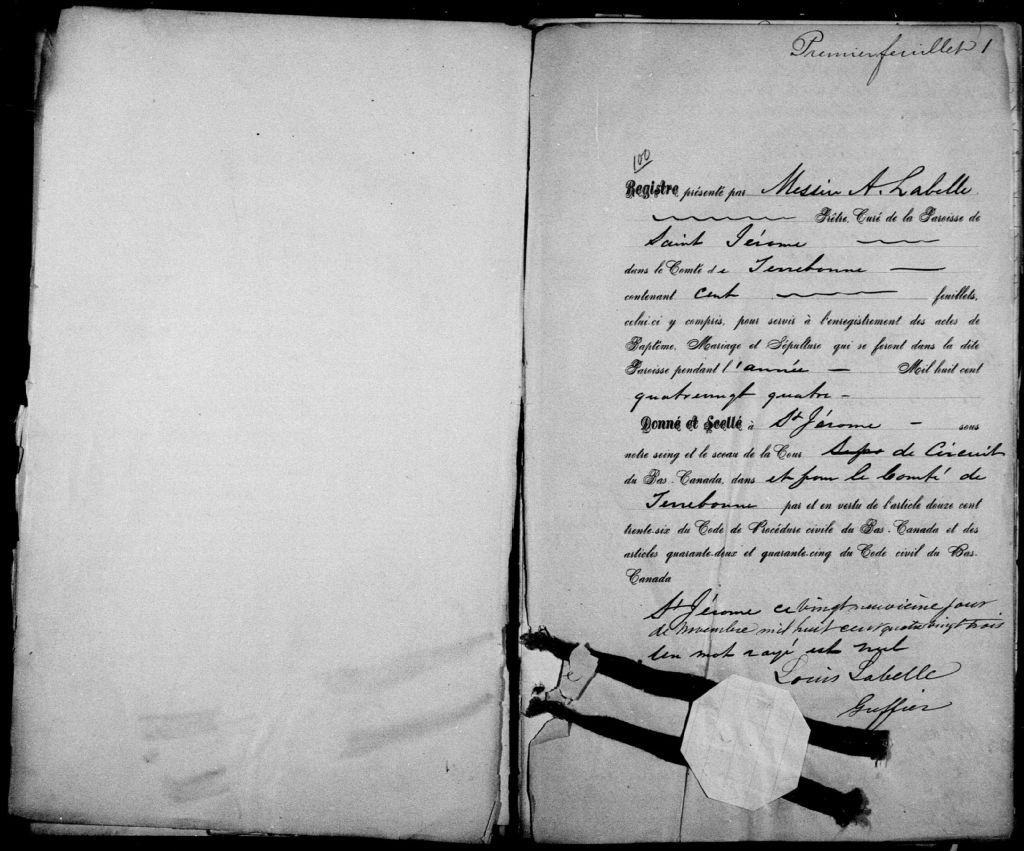 Premier feuillet 1
100
Registre présenté par Messire A. Labelle
Prêtre, Curé de la Paroisse de
Saint Jérome
dans le Comté de Terrebonne
contenant cent feuillets,
celui-ci y compris, pour servir à l'enregistrement des actes de
Baptême, Mariage et Sépulture qui se feront dans la dite
Paroisse pendant l'année Mil huit cent
quatrevingt quatre
Donné et Scellé à St Jérome sous
notre seing et le sceau de la Cour de Circuit
du Bas-Canada, dans et pour le Comté de
Terrebonne par et en vertu de l'article douze cent
trente-six du Code de Procédure civile du Bas-Canada et des
articles quarante-deux et quarante-cinq du Code civil du Bas-
Canada
St Jérome ce vingt neuvième jour
de Novembre mil huit cent quatre vingt trois
Un mot rayé est nul
Louis Labelle
Greffier